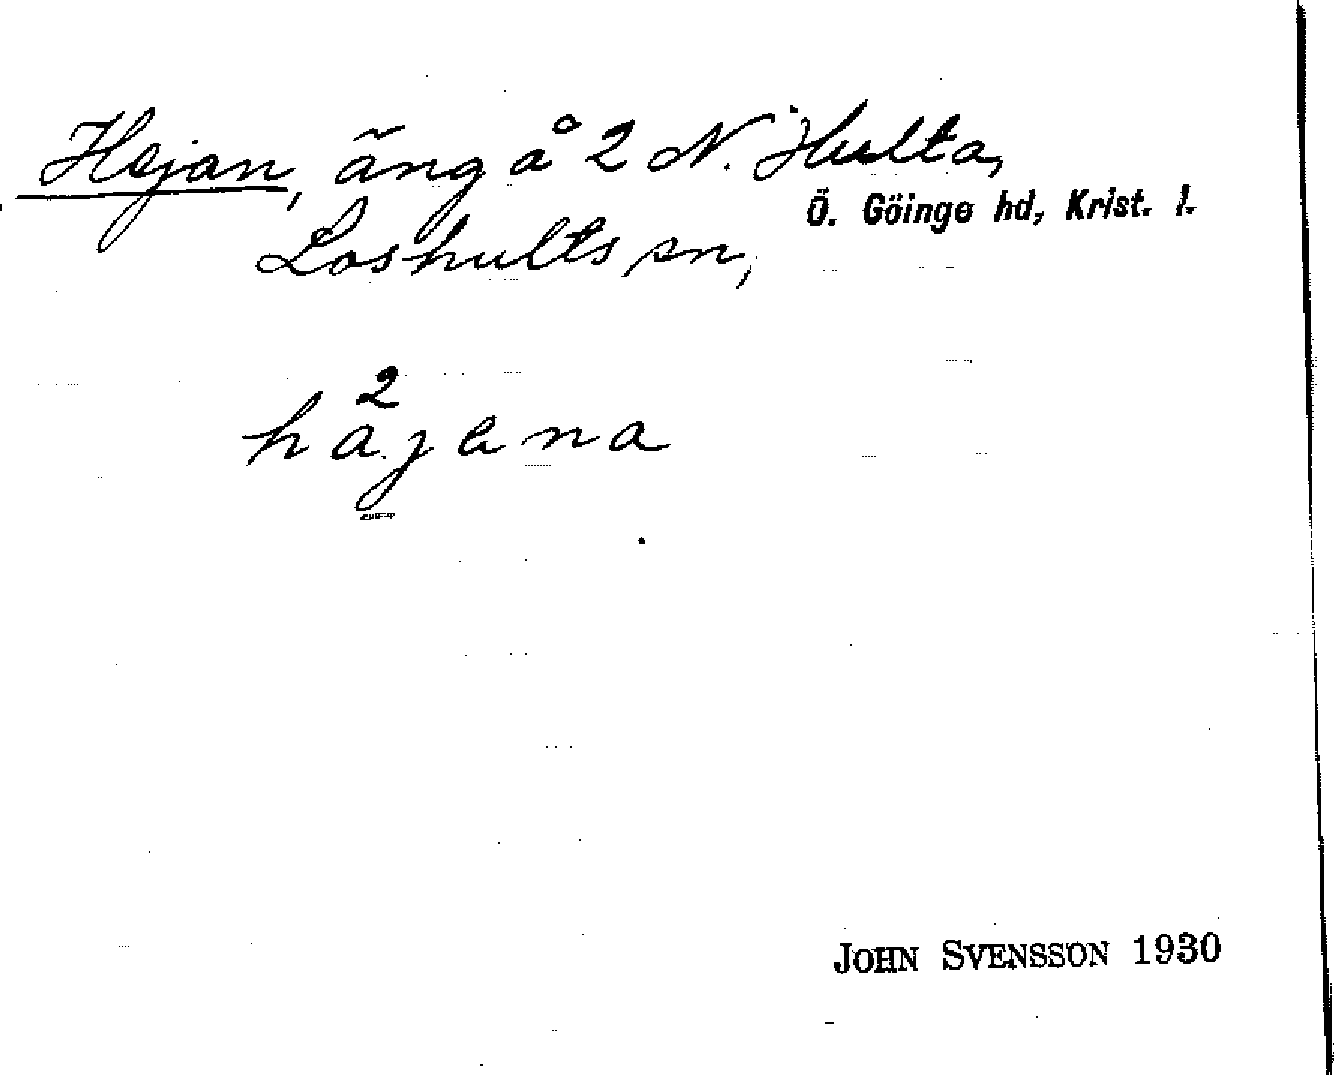 Hejan, äng å 2 N. Hulta,
Ö. Göinge hd, Krist. l.
Loshults sn,
2
håjena
JOHN SVENSSON 1930